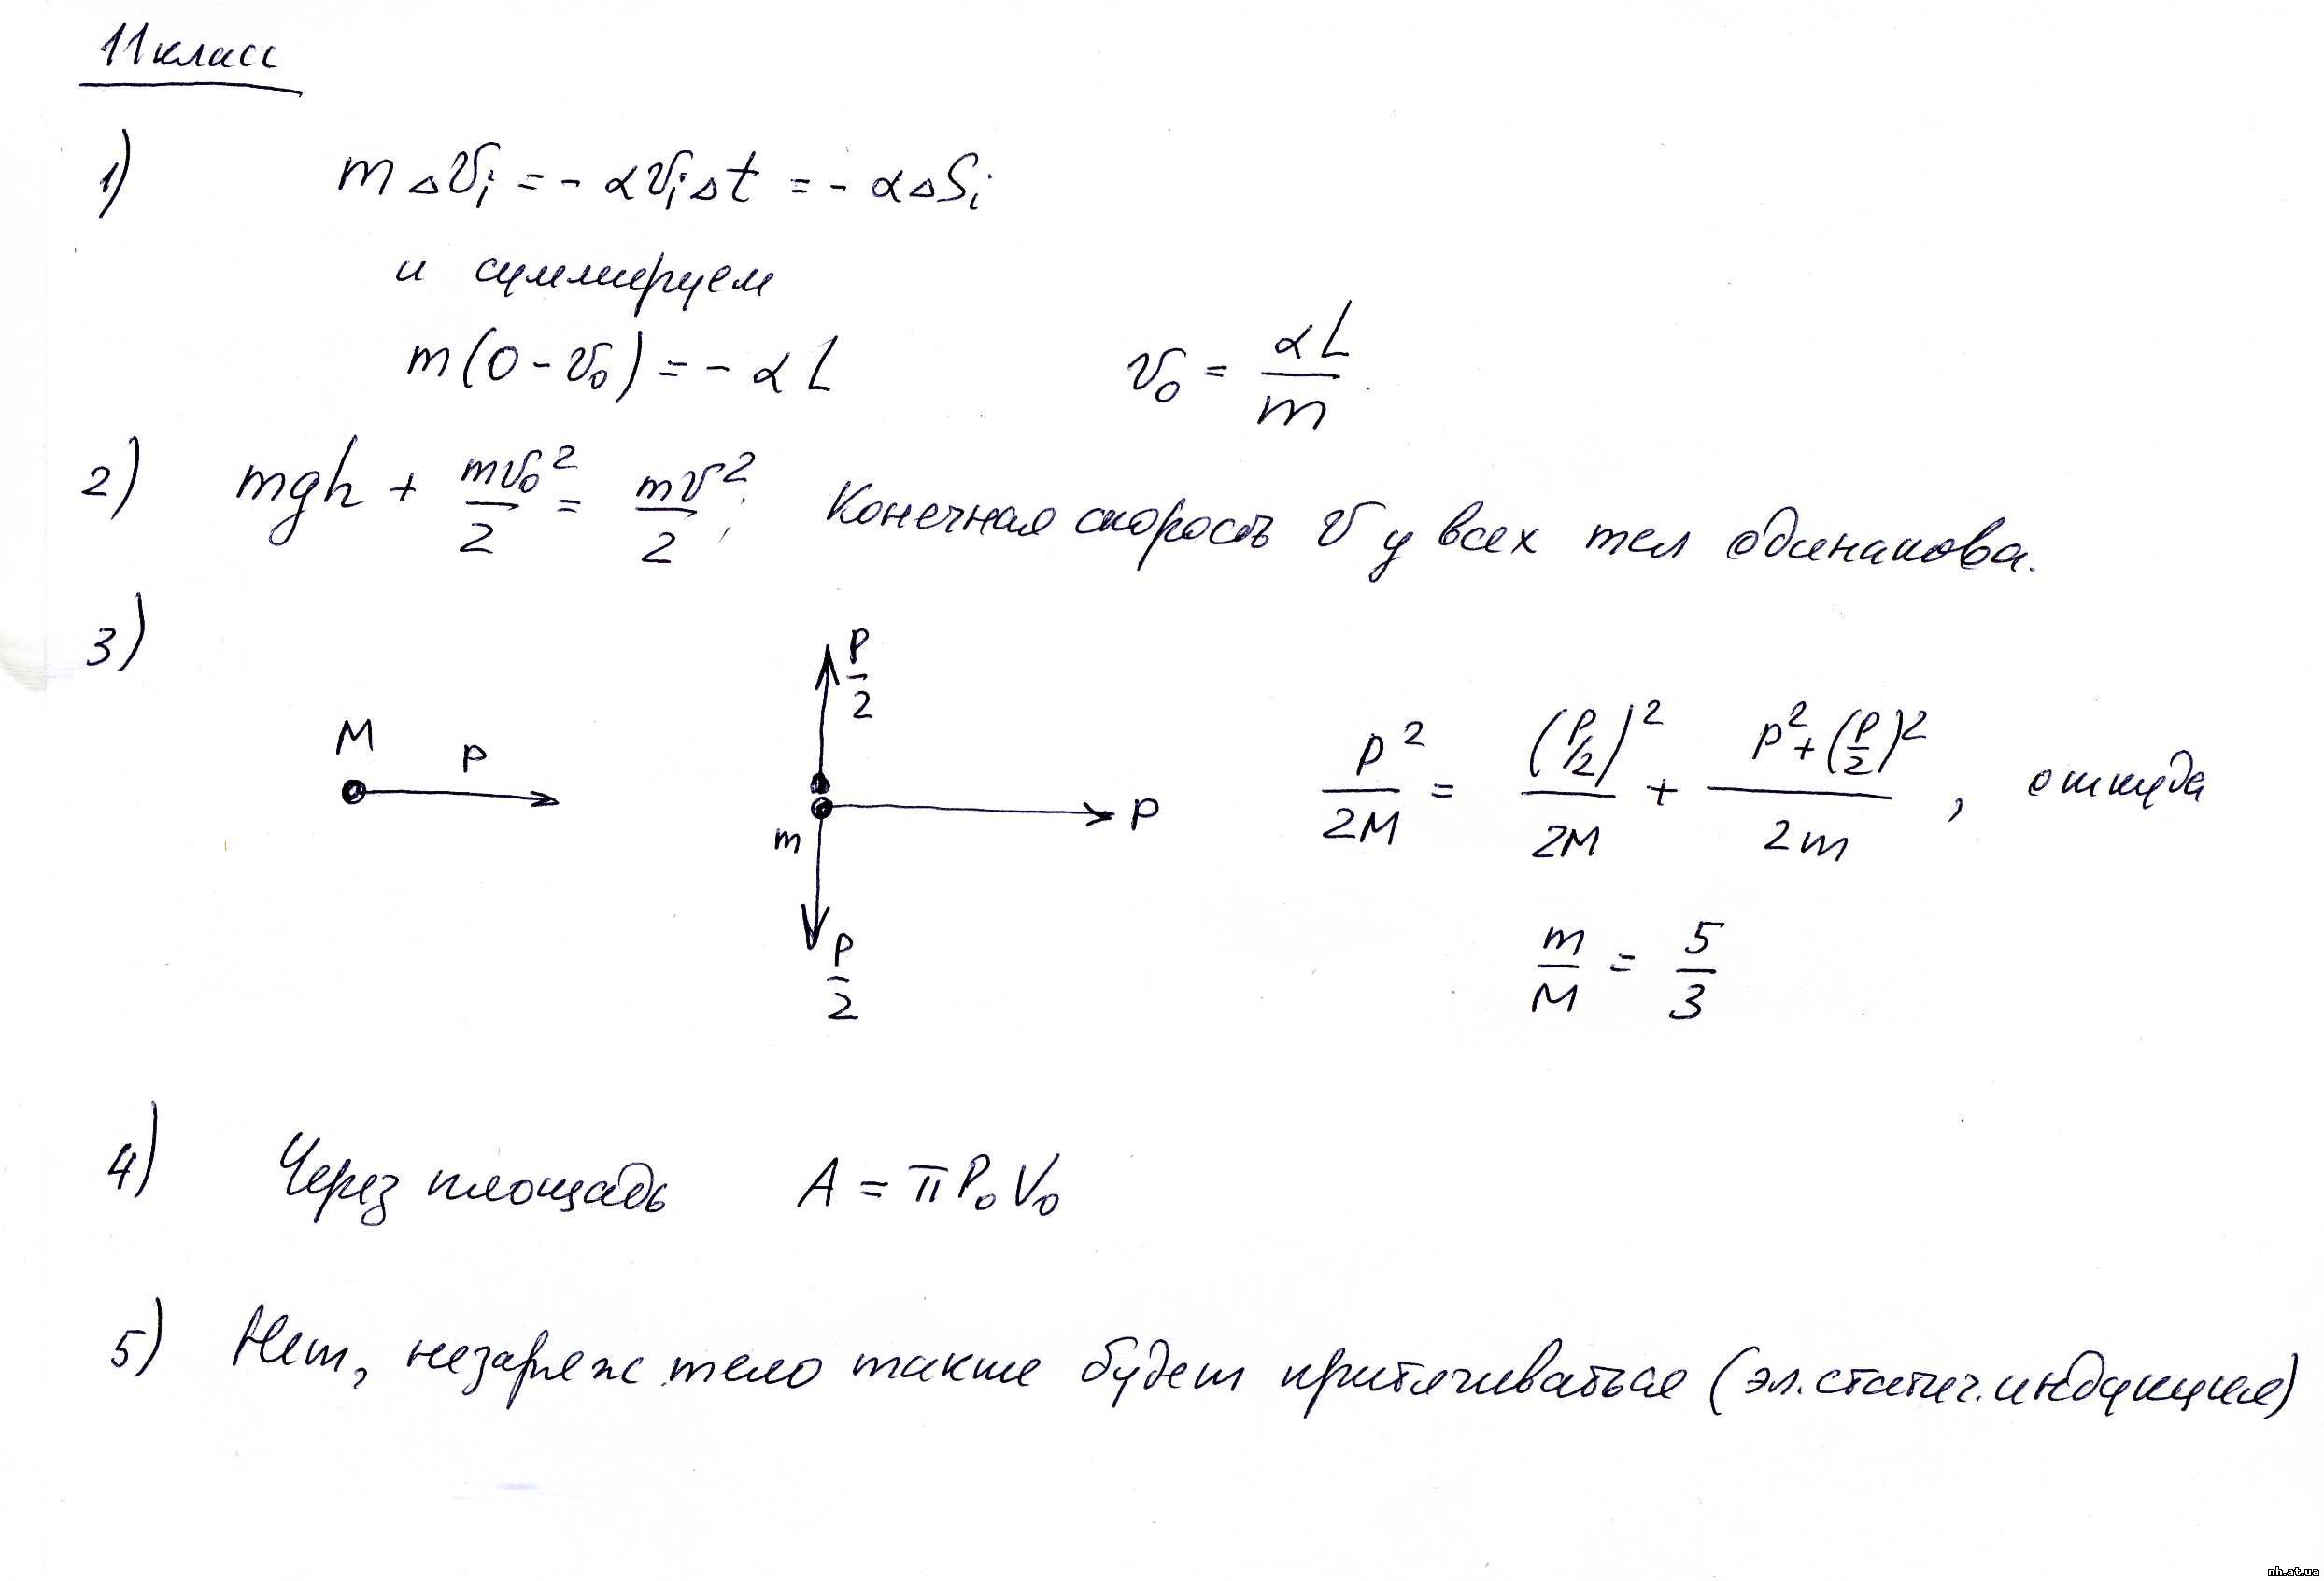 11 класс
1) m ΔV_i = - αV_i Δt = - αΔS_i
и суммируем
m(0 - V_0) = - αL    V_0 = αL/m.
2) mgh + mV_0²/2 = mV²/2; Конечная скорость V у всех тел одинакова.
3)
P/2
M
P
m
P
P/2
P²/2M = (P/2)²/2M + (P² + (P/2)²)/2m, откуда
m/M = 5/3
4) Через площадь A = πP_0V_0
5) Нет, незаряж. тело также будет притягиваться (эл.статич. индукция)
nh.at.ua